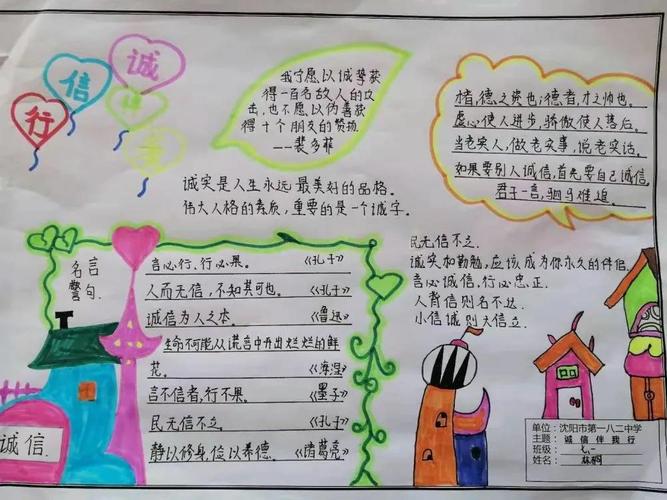 诚
信
伴
我
行
我宁愿以诚挚获
得一百名敌人的攻
击,也不愿以伪善获
得十个朋友的赞扬
——裴多菲
才者,德之资也;德者,才之帅也。
虚心使人进步,骄傲使人落后。
当老实人,做老实事,说老实话。
如果要别人诚信,首先要自己诚信
君子一言,驷马难追
诚实是人生永远最美好的品格。
伟大人格的素质,重要的是一个诚字。
名言
警句.
言必行、行必果。 《孔子》
人而无信,不知其可也。 《孔子》
诚信为人之本. 《鲁迅》
生命不可能从谎言中开出灿烂的鲜
花。 《海涅》
言不信者,行不果。 《墨子》
民无信不立. 《孔子》
静以修身,俭以养德. 《诸葛亮》
诚信.
民无信不立.
诚实和勤勉,应该成为你永久的伴侣.
言必诚信,行必忠正.
人背信则名不达.
小信诚则大信立.
单位:沈阳市第一八二中学
主题:诚信伴我行
班级:七.一
姓名: